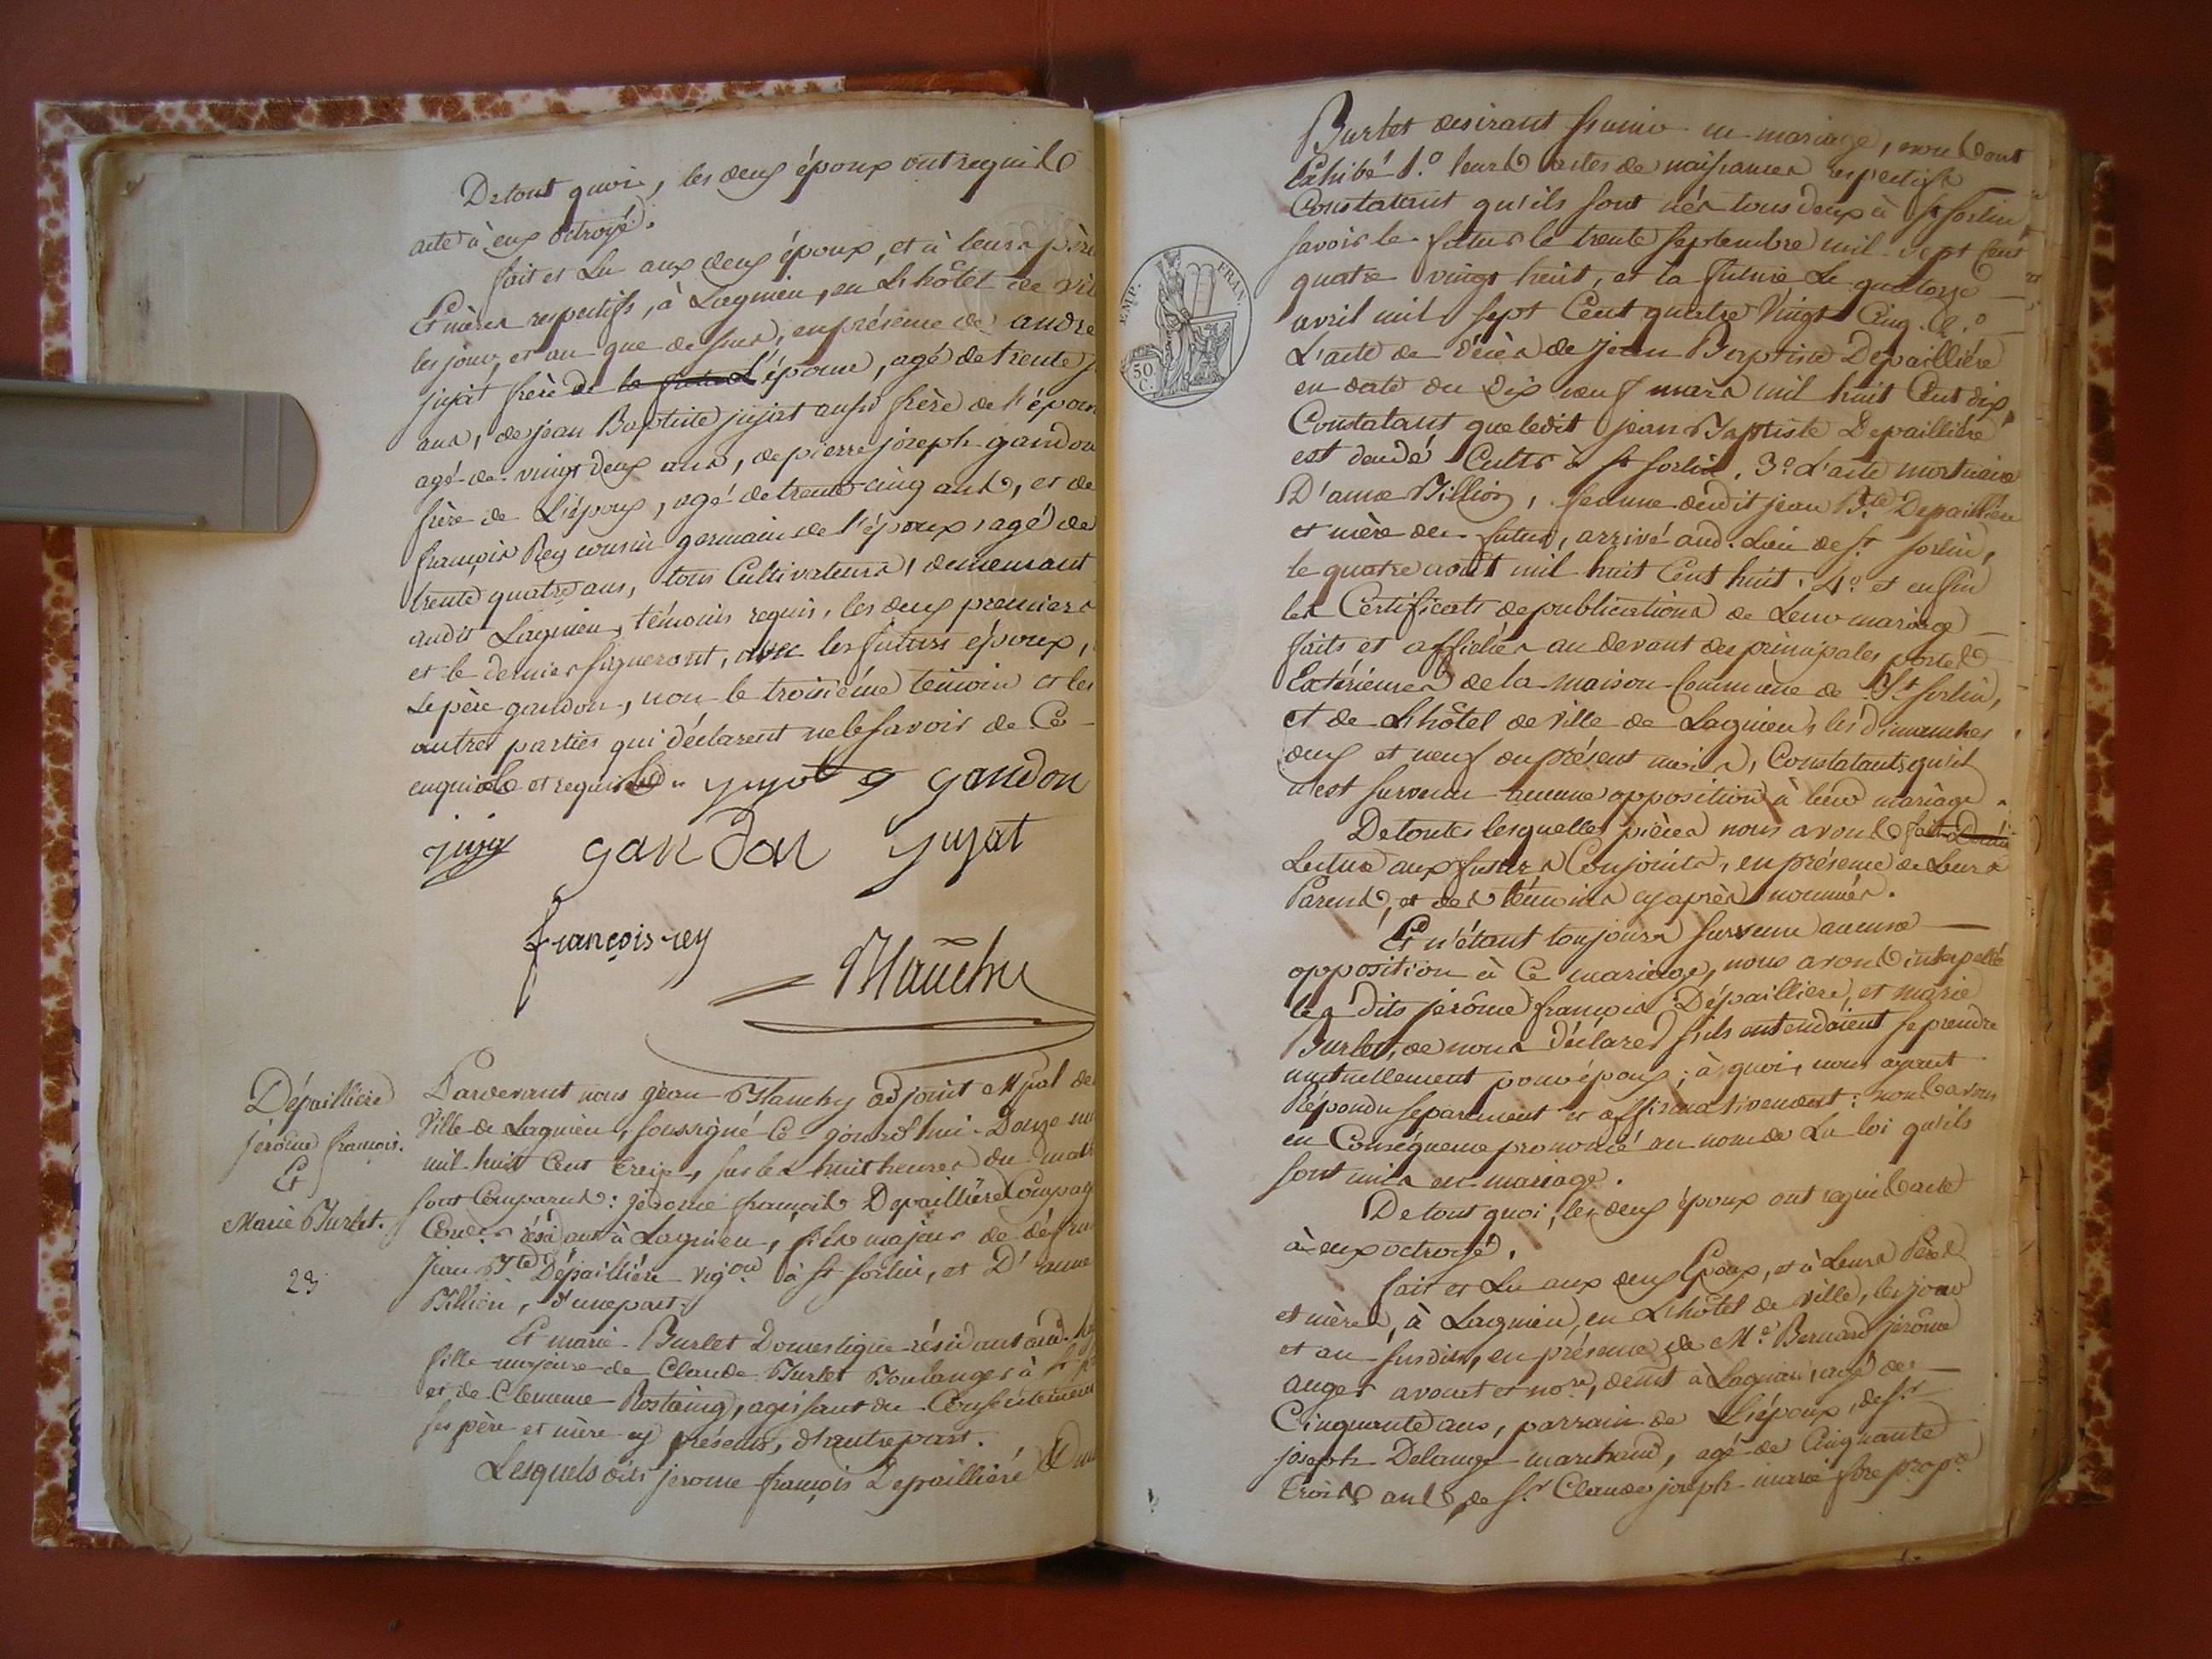 De tout quoi, les deux époux ont requis
acte à eux octroyé.
fait et Lu aux deux époux, et à leurs père
Et mères respectifs, à Lagnieu, en L'hôtel de vil
les jour, et an que dessus, en présence de andre
jujat frère de la future L'épouse, agé de trente
ans, de jean Baptiste jujat aussi frère de l'épou
agé de vingt deux ans, de pierre joseph gandon
frère de L'époux, agé de trente cinq ans, et de
françois Rey cousin germain de l'époux, agé de
trente quatre ans, tous Cultivateurs, demeurant
audit Lagnieu, témoins requis, les deux premiers
et le dernier signeront, avec les futurs époux,
Le père gandon, non le troisième témoin et les
autres parties qui déclarent ne le savoir de Ce
enquis et requis jujat g gandon
gandon jujat
françois rey
Blanchy
Dépaillière
jérôme françois.
Et
Marie Burlet.
23
Pardevant nous jean Blanchy adjoint Mpal de
Ville de Lagnieu, soussigné Ce jourd'hui Douze
mil huit Cent treize, sur les huit heures du mat
sont Comparus: jérome françois Depaillière
résidant à Lagnieu, fils majeur de défun
Jean Bte Dépaillière vigon à St Sorlin, et D'anne
Billion, d'une part.
Et marie Burlet Domestique résidant aud.
fille majeure de Claude Burlet Boulanger à St
et de Clemence Rostaing, agissant du Consentement
ses père et mère cy présents, d'autre part.
Lesquels dits jerome françois Depaillière
Burlet desirant s'unir en mariage, nous ont
Exhibé 1.° leurs actes de naissances respectifs
Constatant qu'ils sont nés tous deux à St Sorlin
savoir le futur le trente septembre mil sept Cent
quatre vingt huit, et la future Le quatorze
avril mil sept Cent quatre Vingt Cinq. 2.°
L'acte de décès de jean Baptiste Depaillière
en date du Dix neuf mars mil huit Cent dix,
Constatant que ledit jean Baptiste Depaillière
est décédé Cultr à St Sorlin. 3.° L'acte mortuaire
D'anne Billion, femme dudit jean Bte Depaillière
et mère du futur, arrivé aud. Lieu de St Sorlin,
le quatre août mil huit Cent huit. 4.° et enfin
les Certificats de publications de Leur mariage
faits et affichés au devant des principales portes
Extérieures de la maison Commune de St Sorlin,
et de L'hôtel de ville de Lagnieu, les Dimanches
deux et neuf du présent mois, Constatants qu'il
n'est survenu aucune opposition à leur mariage.
De toutes lesquelles pièces nous avons fait
Lecture aux futurs Conjoints, en présence de Leurs
Parens, et des témoins cy après nommés.
Et n'étant toujours survenu aucune
opposition à Ce mariage, nous avons interpellé
les dits jérôme françois Dépaillière, et marie
Burlet, de nous déclarer s'ils entendaient se prendre
mutuellement pour époux; à quoi, nous ayant
Répondu separement et affirmativement: nous avons
en Conséquence prononcé au nom de La loi qu'ils
sont unis en mariage.
De tout quoi, les deux époux ont requis acte
à eux octroyé.
fait et Lu aux deux Epoux, et à Leurs Père
et mère, à Lagnieu, en L'hôtel de ville, les jour
et an susdits, en présence de Me Bernard jérôme
auger avouet et nore, demt à Lagnieu, agé de
Cinquante ans, parrain de L'époux, de Sr
joseph Delange marchand, agé de Cinquante
trois ans, de Sr Claude joseph marie fore propre
EMP. FRAN.
50
C.